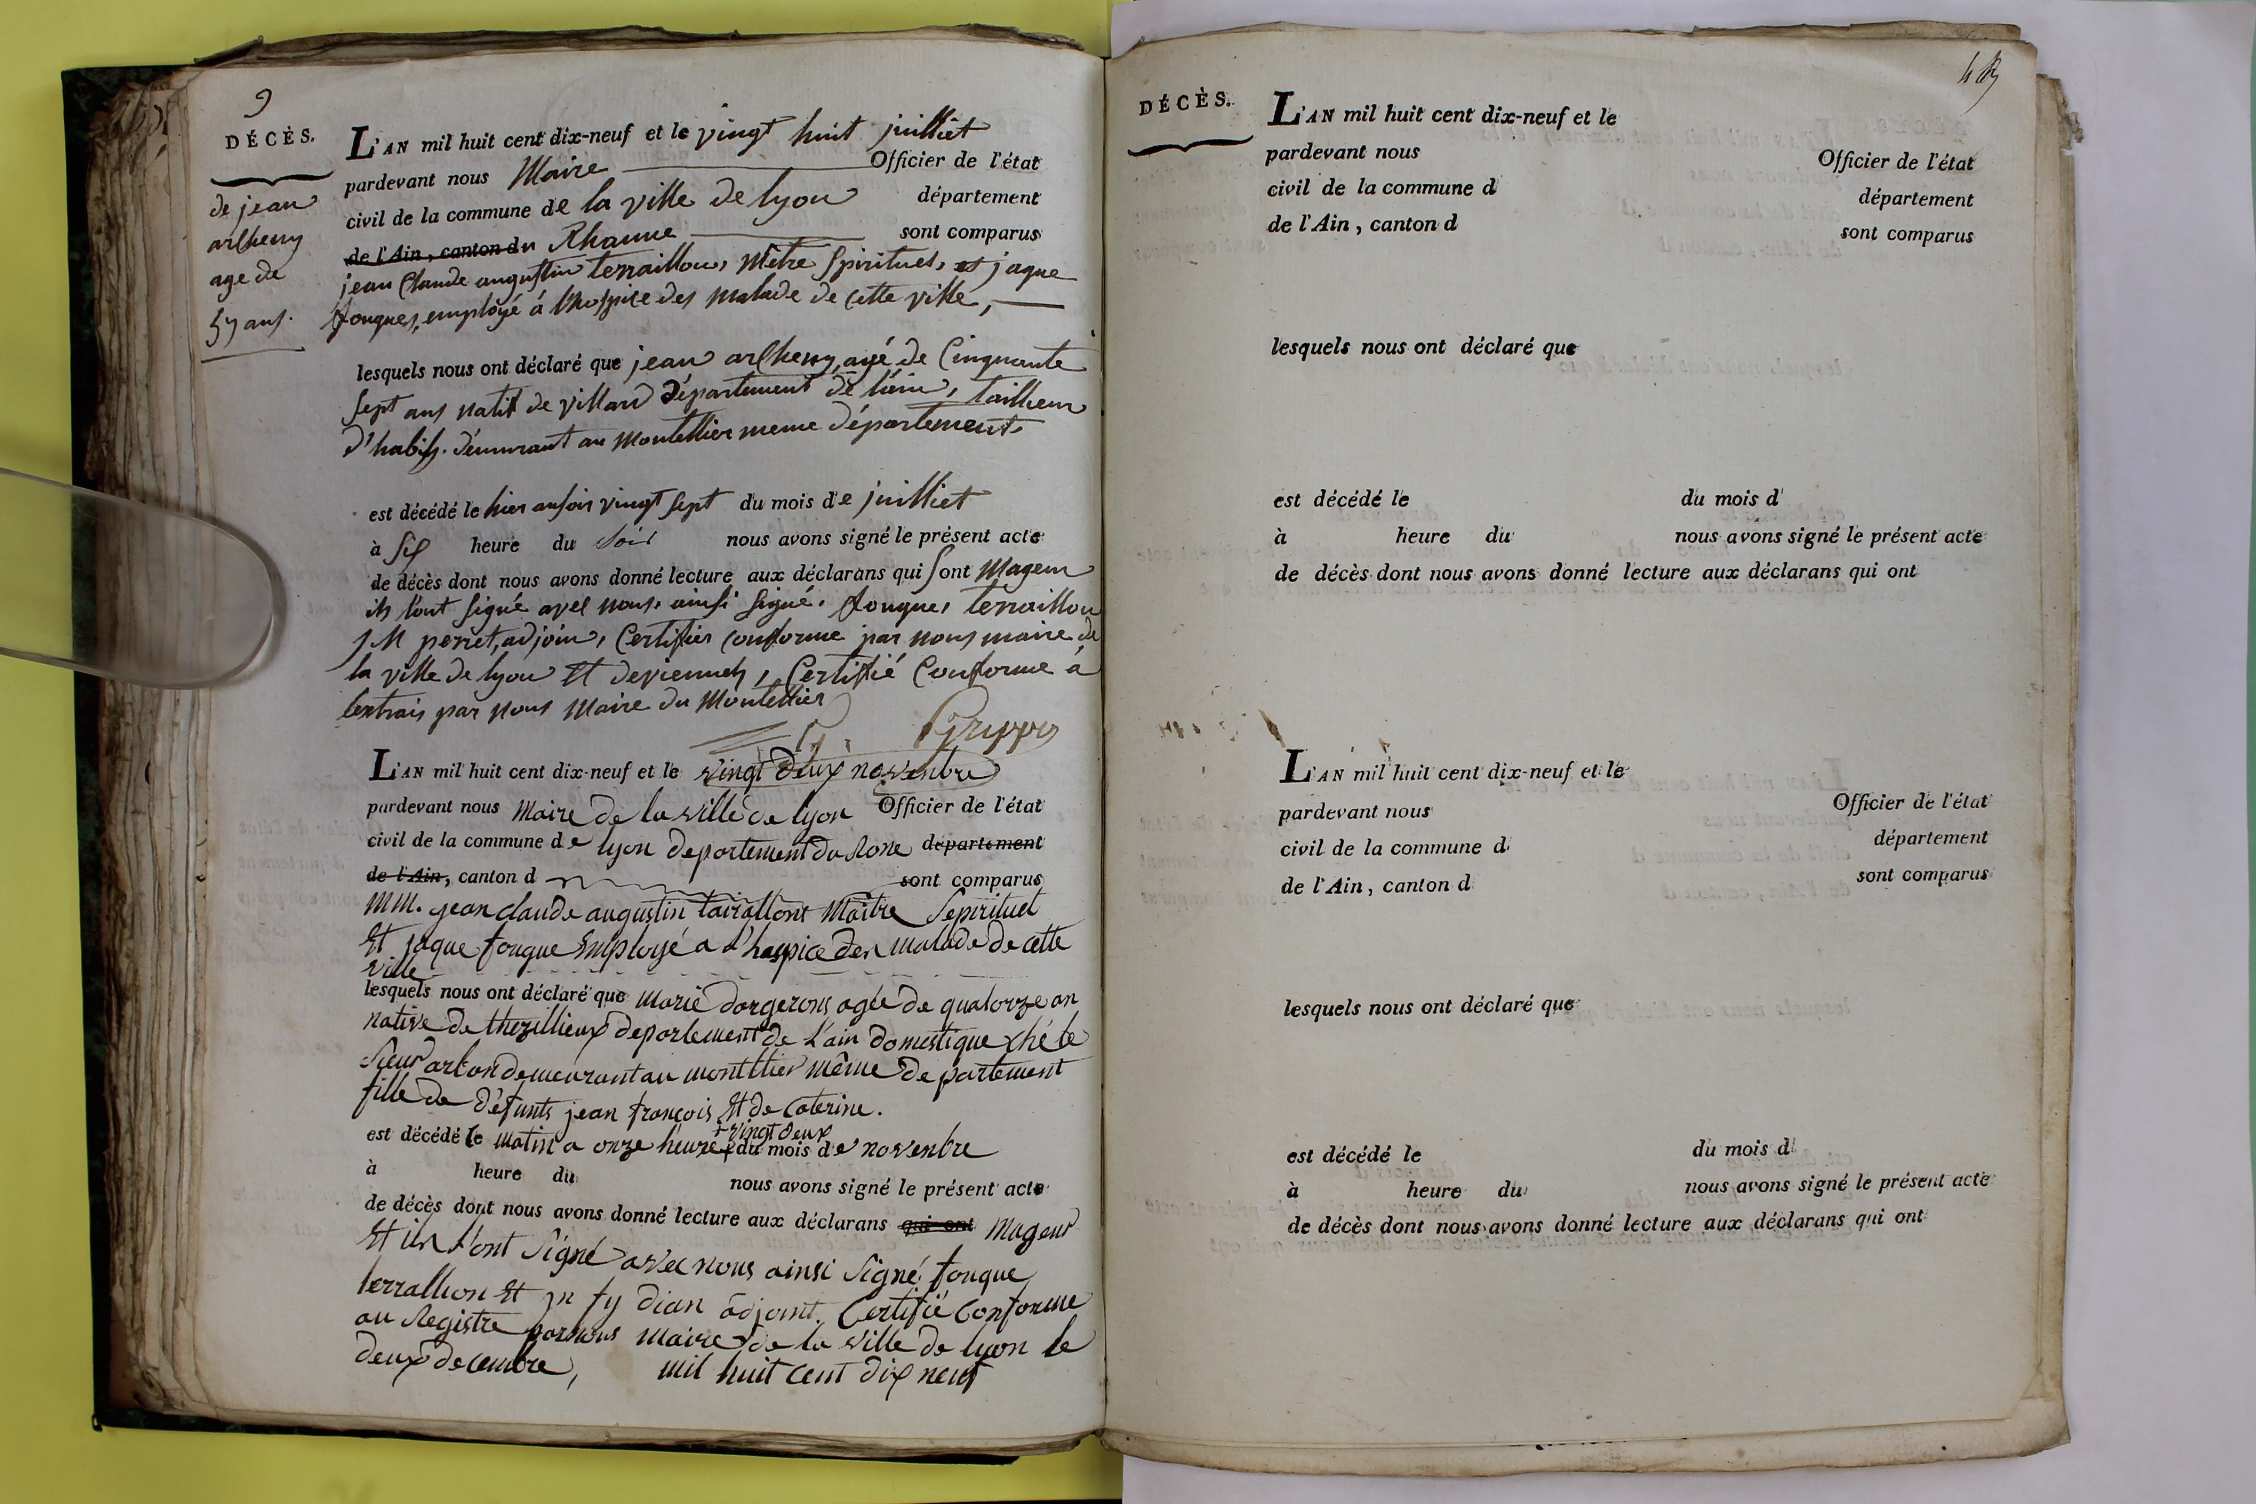 9
DÉCÈS.
de jean
archeny
age de
57 ans.
L'AN mil huit cent dix-neuf et le vingt huit juilliet
pardevant nous Maire Officier de l'état
civil de la commune de la ville de lyon département
de l'Ain, canton du Rhanne sont comparus
jean Claude augustin terraillon, Mêtre Spirituel, et jaque
fouques, employé á l'hospice des malade de cette ville,
lesquels nous ont déclaré que jean archeny, agé de Cinquante
sept ans natif de villard département de l'ein, tailleur
d'habis. démurant au Montellier meme département
est décédé le hier ausoir vingt sept du mois de juilliet
à six heure du soir nous avons signé le présent acte
de décès dont nous avons donné lecture aux déclarans qui sont Mageur
ils l'ont signé avec nous, ainsi signé, fouque, terraillon
J M perret, adjoin, Certifier conforme par nous maire de
la ville de lyon Et devienneh, Certifié Conforme á
lextrais par nous Maire du Montellier
Grippo
L'AN mil huit cent dix-neuf et le vingt deux novenbre
pardevant nous Maire de la ville de lyon Officier de l'état
civil de la commune de lyon departement du Rone département
de l'Ain, canton d sont comparus
MM. jean claude augustin tairallont Maitre Sepirituel
Et jaque fouque Employé a l'haspice des malade de cette
ville
lesquels nous ont déclaré que marie dorgerons agée de quatorze an
native de thezillieux departement de l'ain domestique ché le
sieur arbon demeurant au montllier même departement
fille de défunts jean françois Et de Caterine.
+ vingt deux
est décédé le matin a onze heure + du mois de novenbre
à heure du nous avons signé le présent acte
de décès dont nous avons donné lecture aux déclarans qui ont Mageur
Et ils l'ont Signé avec nous ainsi Signé, fouque,
terrallion Et dian adjoint. Certifié Conforme
au Registre par nous maire de la ville de lyon le
deux decembre, mil huit cent dix neuf
DÉCÈS.
L'AN mil huit cent dix-neuf et le
pardevant nous Officier de l'état
civil de la commune d département
de l'Ain, canton d sont comparus
lesquels nous ont déclaré que
est décédé le du mois d
à heure du nous avons signé le présent acte
de décès dont nous avons donné lecture aux déclarans qui ont
L'AN mil huit cent dix-neuf et le
pardevant nous Officier de l'état
civil de la commune d département
de l'Ain, canton d sont comparus
lesquels nous ont déclaré que
est décédé le du mois d
à heure du nous avons signé le présent acte
de décès dont nous avons donné lecture aux déclarans qui ont